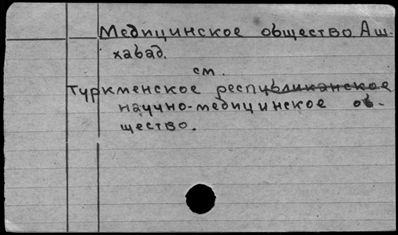 Медицинское общество. Аш-
хабад.
см.
Туркменское республиканское
научно-медицинское об-
щество.